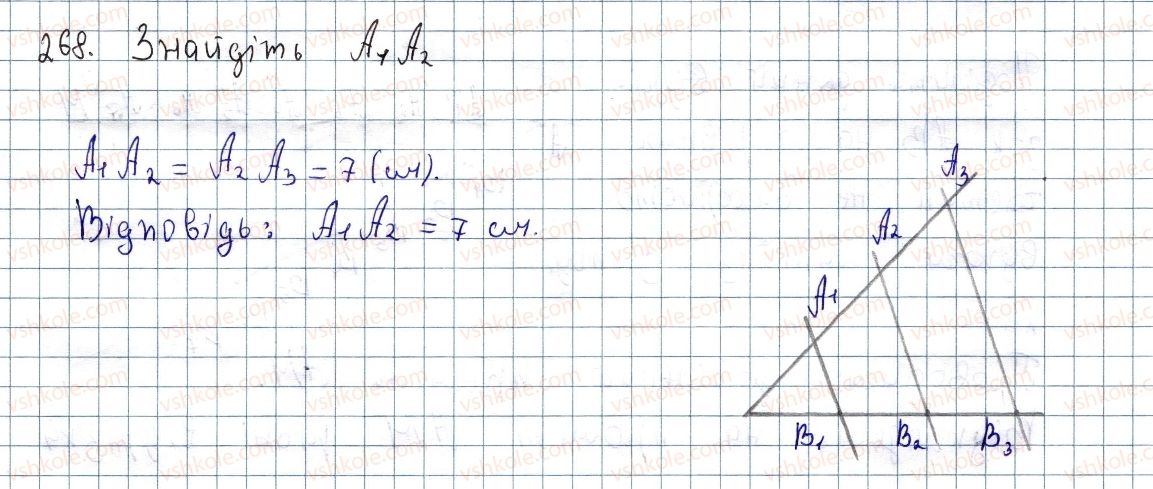 268. Знайдіть A₁A₂
A₁A₂ = A₂A₃ = 7 (см).
Відповідь: A₁A₂ = 7 см.
A₃
A₂
A₁
B₁ B₂ B₃
vshkole.com